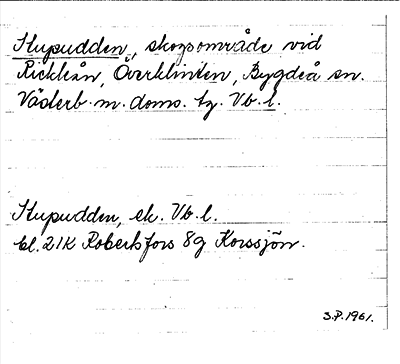 Stupudden, skogsområde vid
Rickleån, Överklinten, Bygdeå sn.
Västerb. m. doms. tg. Vb. l.
Stupudden, ek. Vb. l.
bl. 21K Robertsfors 8g Korssjön.
S.P. 1961.